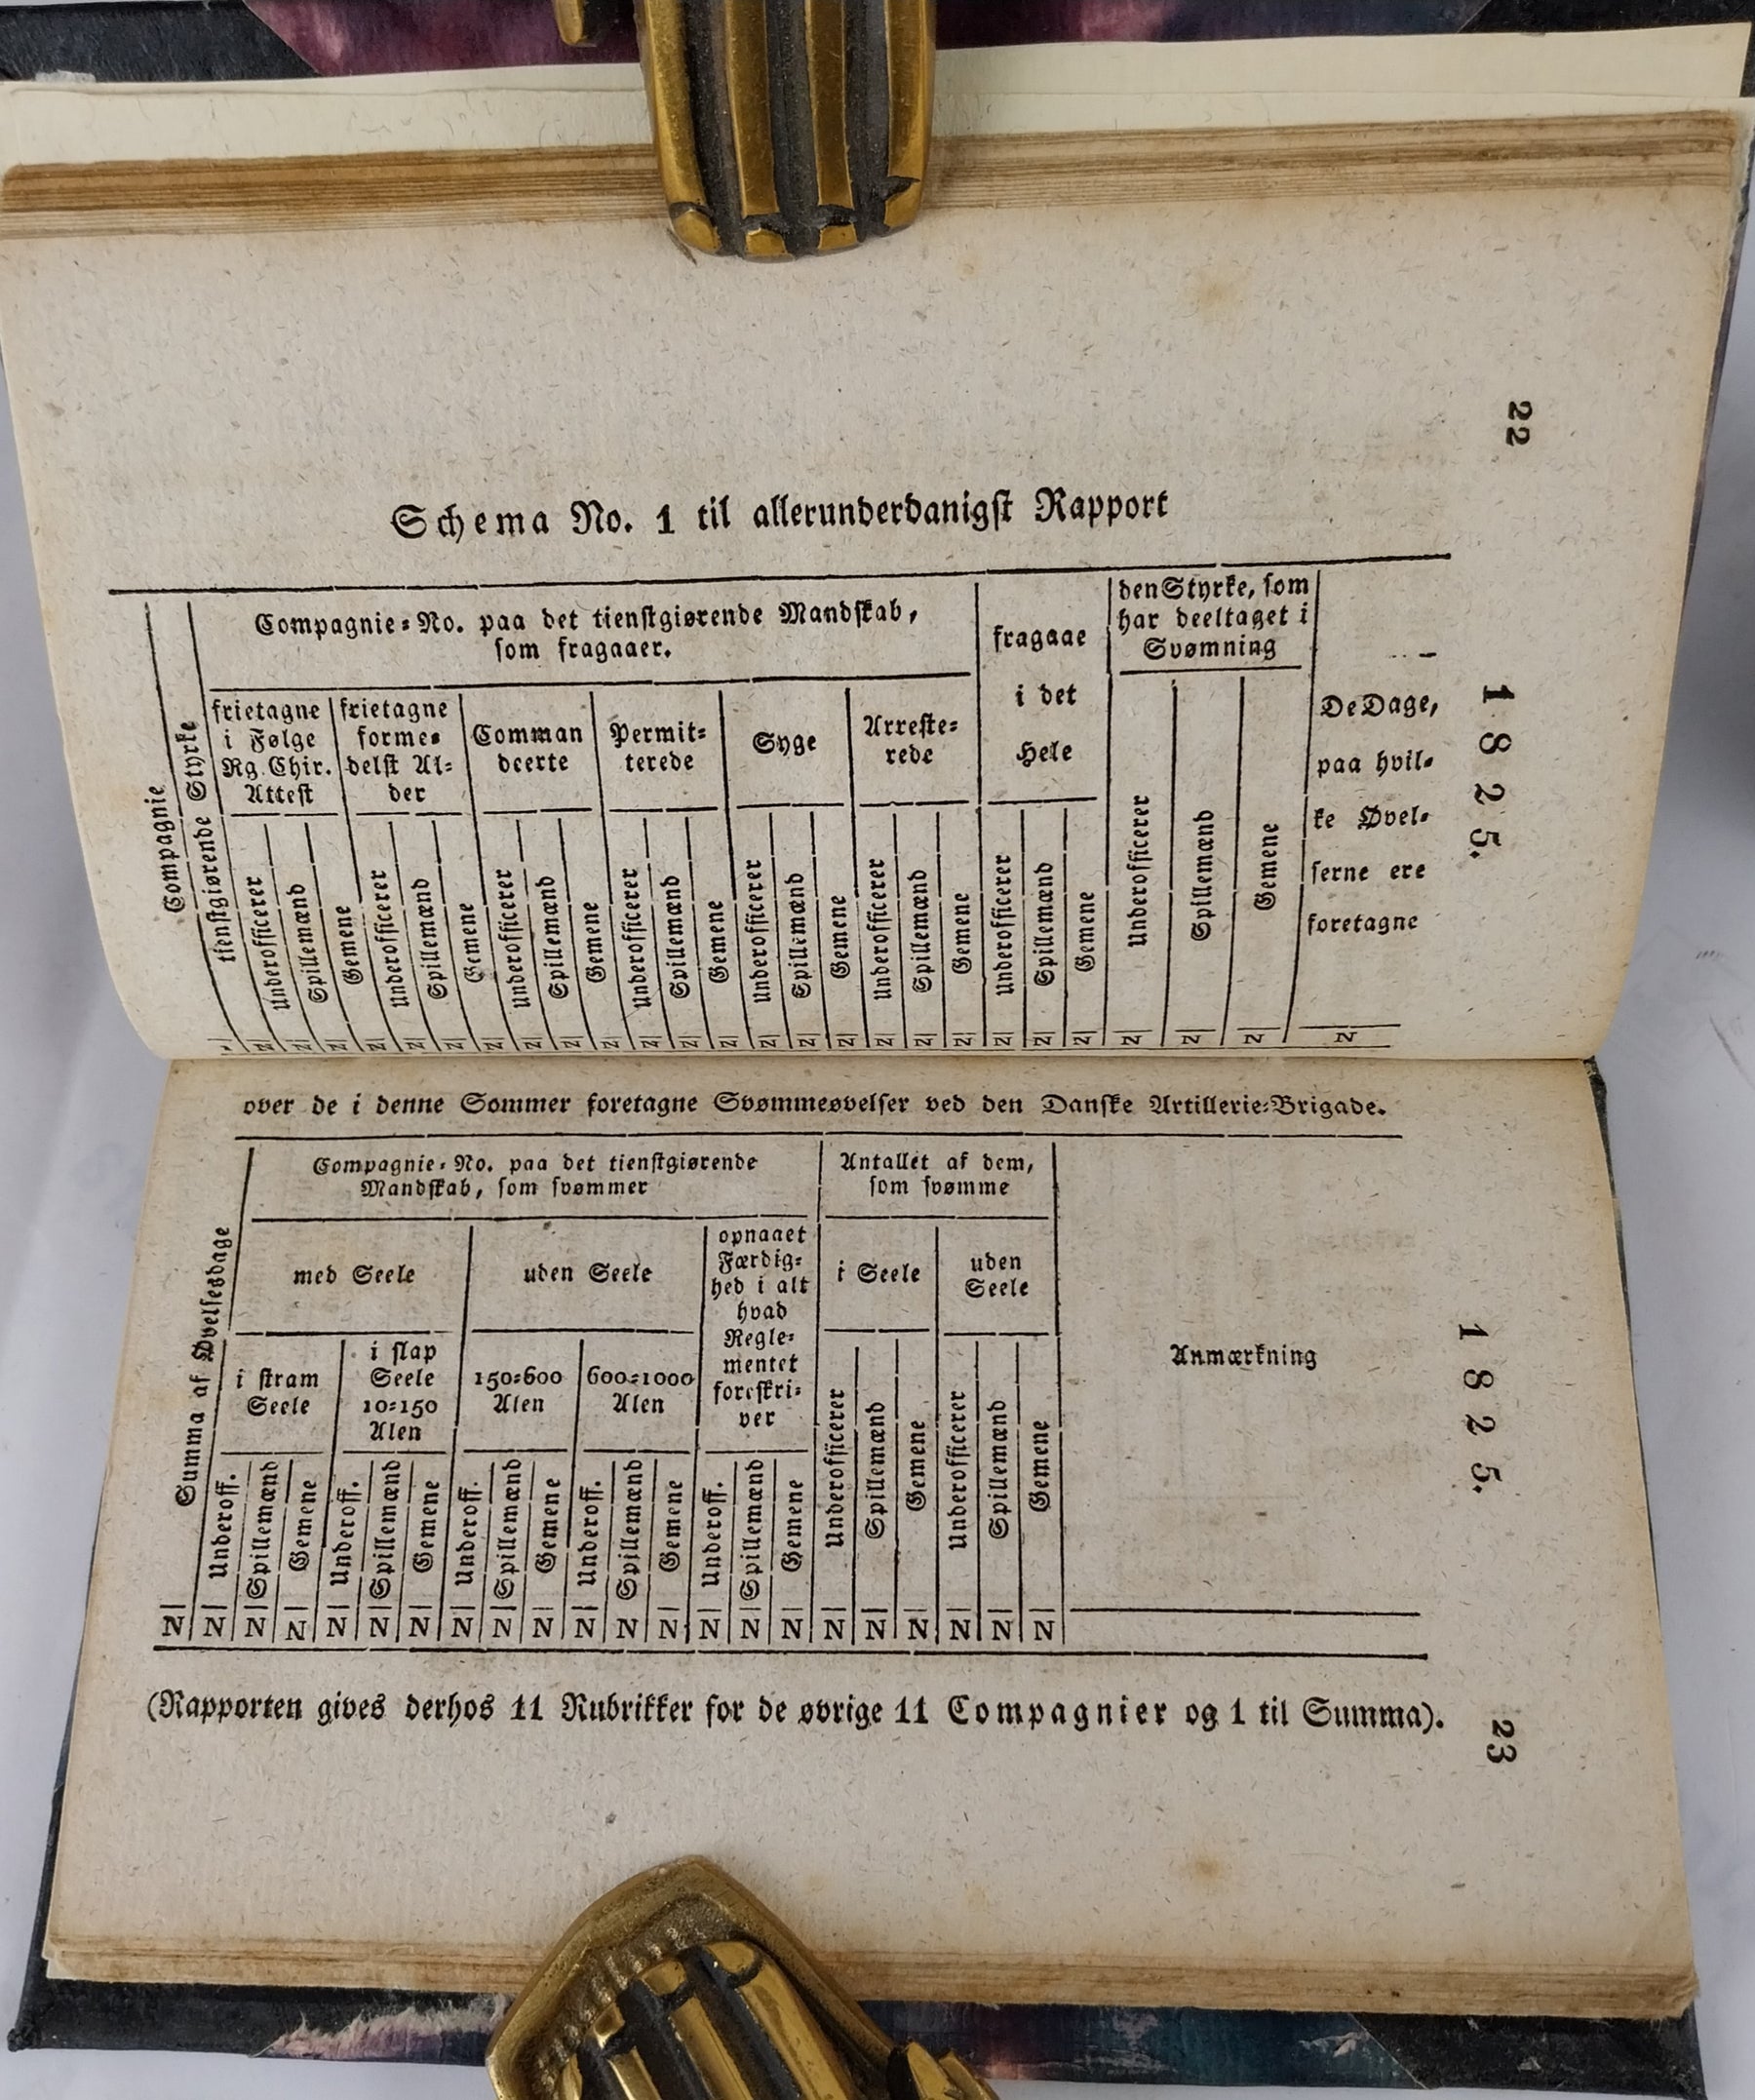 22
1825.
Schema No. 1 til allerunderdanigst Rapport
Compagnie
tienstgiørende Styrke
Compagnie-No. paa det tienstgiørende Mandskab,
som fragaaer.
frietagne
i Følge
Rg. Chir.
Attest
frietagne
forme-
delst Al-
der
Comman
deerte
Permit-
terede
Syge
Arreste-
rede
fragaae
i det
Hele
den Styrke, som
har deeltaget i
Svømning
De Dage,
paa hvil-
ke Øvel-
serne ere
foretagne
Underofficerer
Spillemænd
Gemene
Underofficerer
Spillemænd
Gemene
Underofficerer
Spillemænd
Gemene
Underofficerer
Spillemænd
Gemene
Underofficerer
Spillemænd
Gemene
Underofficerer
Spillemænd
Gemene
Underofficerer
Spillemænd
Gemene
Underofficerer
Spillemænd
Gemene
N N N N N N N N N N N N N N N N N N N N N N N N N
over de i denne Sommer foretagne Svømmeøvelser ved den Danske Artillerie-Brigade.
1825.
Summa af Øvelsesdage
Compagnie-No. paa det tienstgiørende
Mandskab, som svømmer
med Seele
i stram
Seele
i slap
Seele
10-150
Alen
uden Seele
150-600
Alen
600-1000
Alen
opnaaet
Færdig-
hed i alt
hvad
Regle-
mentet
foreskri-
ver
Antallet af dem,
som svømme
i Seele
uden
Seele
Anmærkning
Underoff.
Spillemænd
Gemene
Underoff.
Spillemænd
Gemene
Underoff.
Spillemænd
Gemene
Underoff.
Spillemænd
Gemene
Underoff.
Spillemænd
Gemene
Underofficerer
Spillemænd
Gemene
Underofficerer
Spillemænd
Gemene
N N N N N N N N N N N N N N N N N N N N N N
(Rapporten gives derhos 11 Rubrikker for de øvrige 11 Compagnier og 1 til Summa).
23